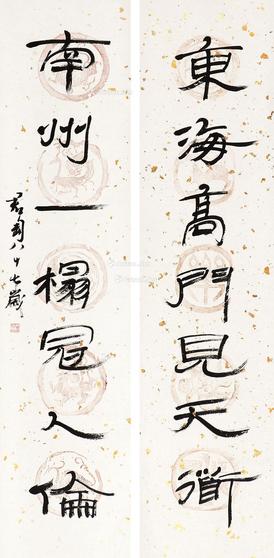 東海高門見天衢
南州一榻冠人倫
君匋八十七歲